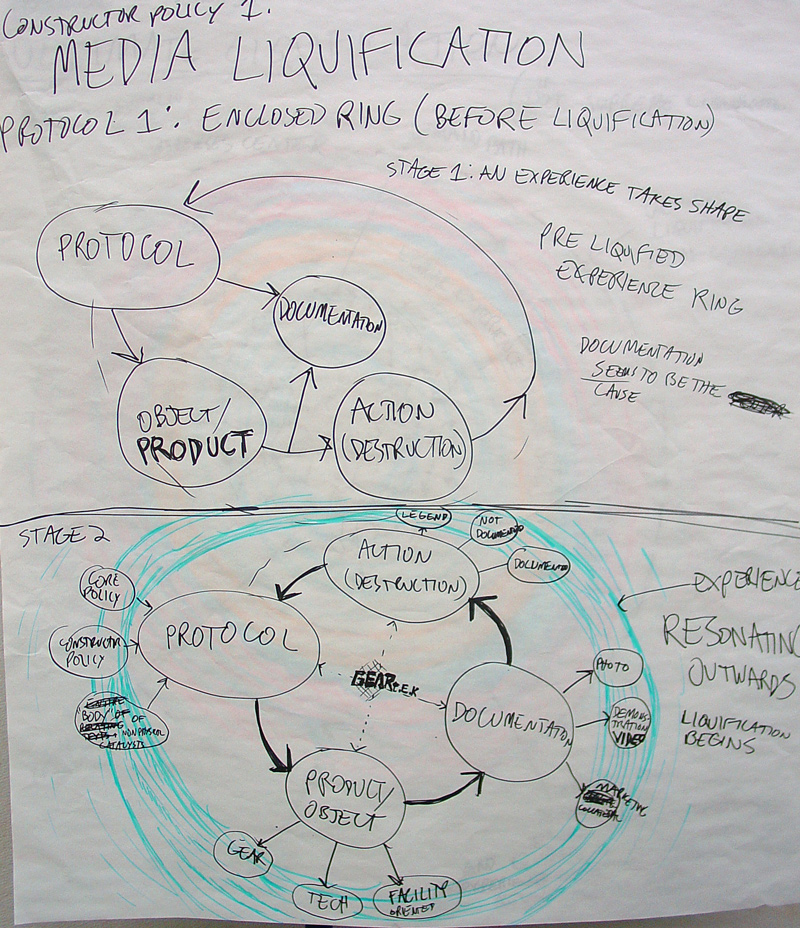 CONSTRUCTOR POLICY 1.
MEDIA LIQUIFICATION
PROTOCOL 1: ENCLOSED RING (BEFORE LIQUIFICATION)
STAGE 1: AN EXPERIENCE TAKES SHAPE
PROTOCOL
PRE LIQUIFIED
EXPERIENCE RING
DOCUMENTATION
DOCUMENTATION
SEEMS TO BE THE
CAUSE
OBJECT/
PRODUCT
ACTION
(DESTRUCTION)
STAGE 2
LEGEND
NOT
DOCUMENTED
ACTION
(DESTRUCTION)
DOCUMENTED
CORE
POLICY
EXPERIENCE
PROTOCOL
CONSTRUCTOR
POLICY
RESONATING
OUTWARDS
PHOTO
GEAR
DOCUMENTATION
"BODY" OF
NON PROTOCOL
CATALYSTS
DEMONS-
TRATION
VIDEO
LIQUIFICATION
BEGINS
PRODUCT/
OBJECT
MARKETING
COLLATERAL
GEAR
TECH
FACILITY
ORIENTED